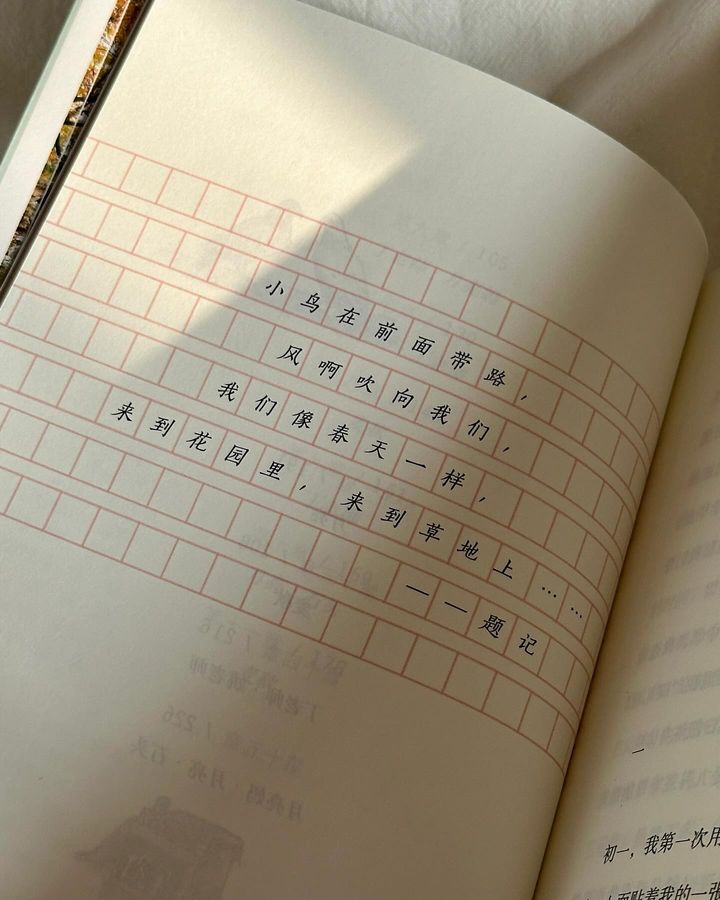 小鸟在前面带路，
风啊吹向我们，
我们像春天一样，
来到花园里，来到草地上……
——题记
一
初一，我第一次用
上面贴着我的一张